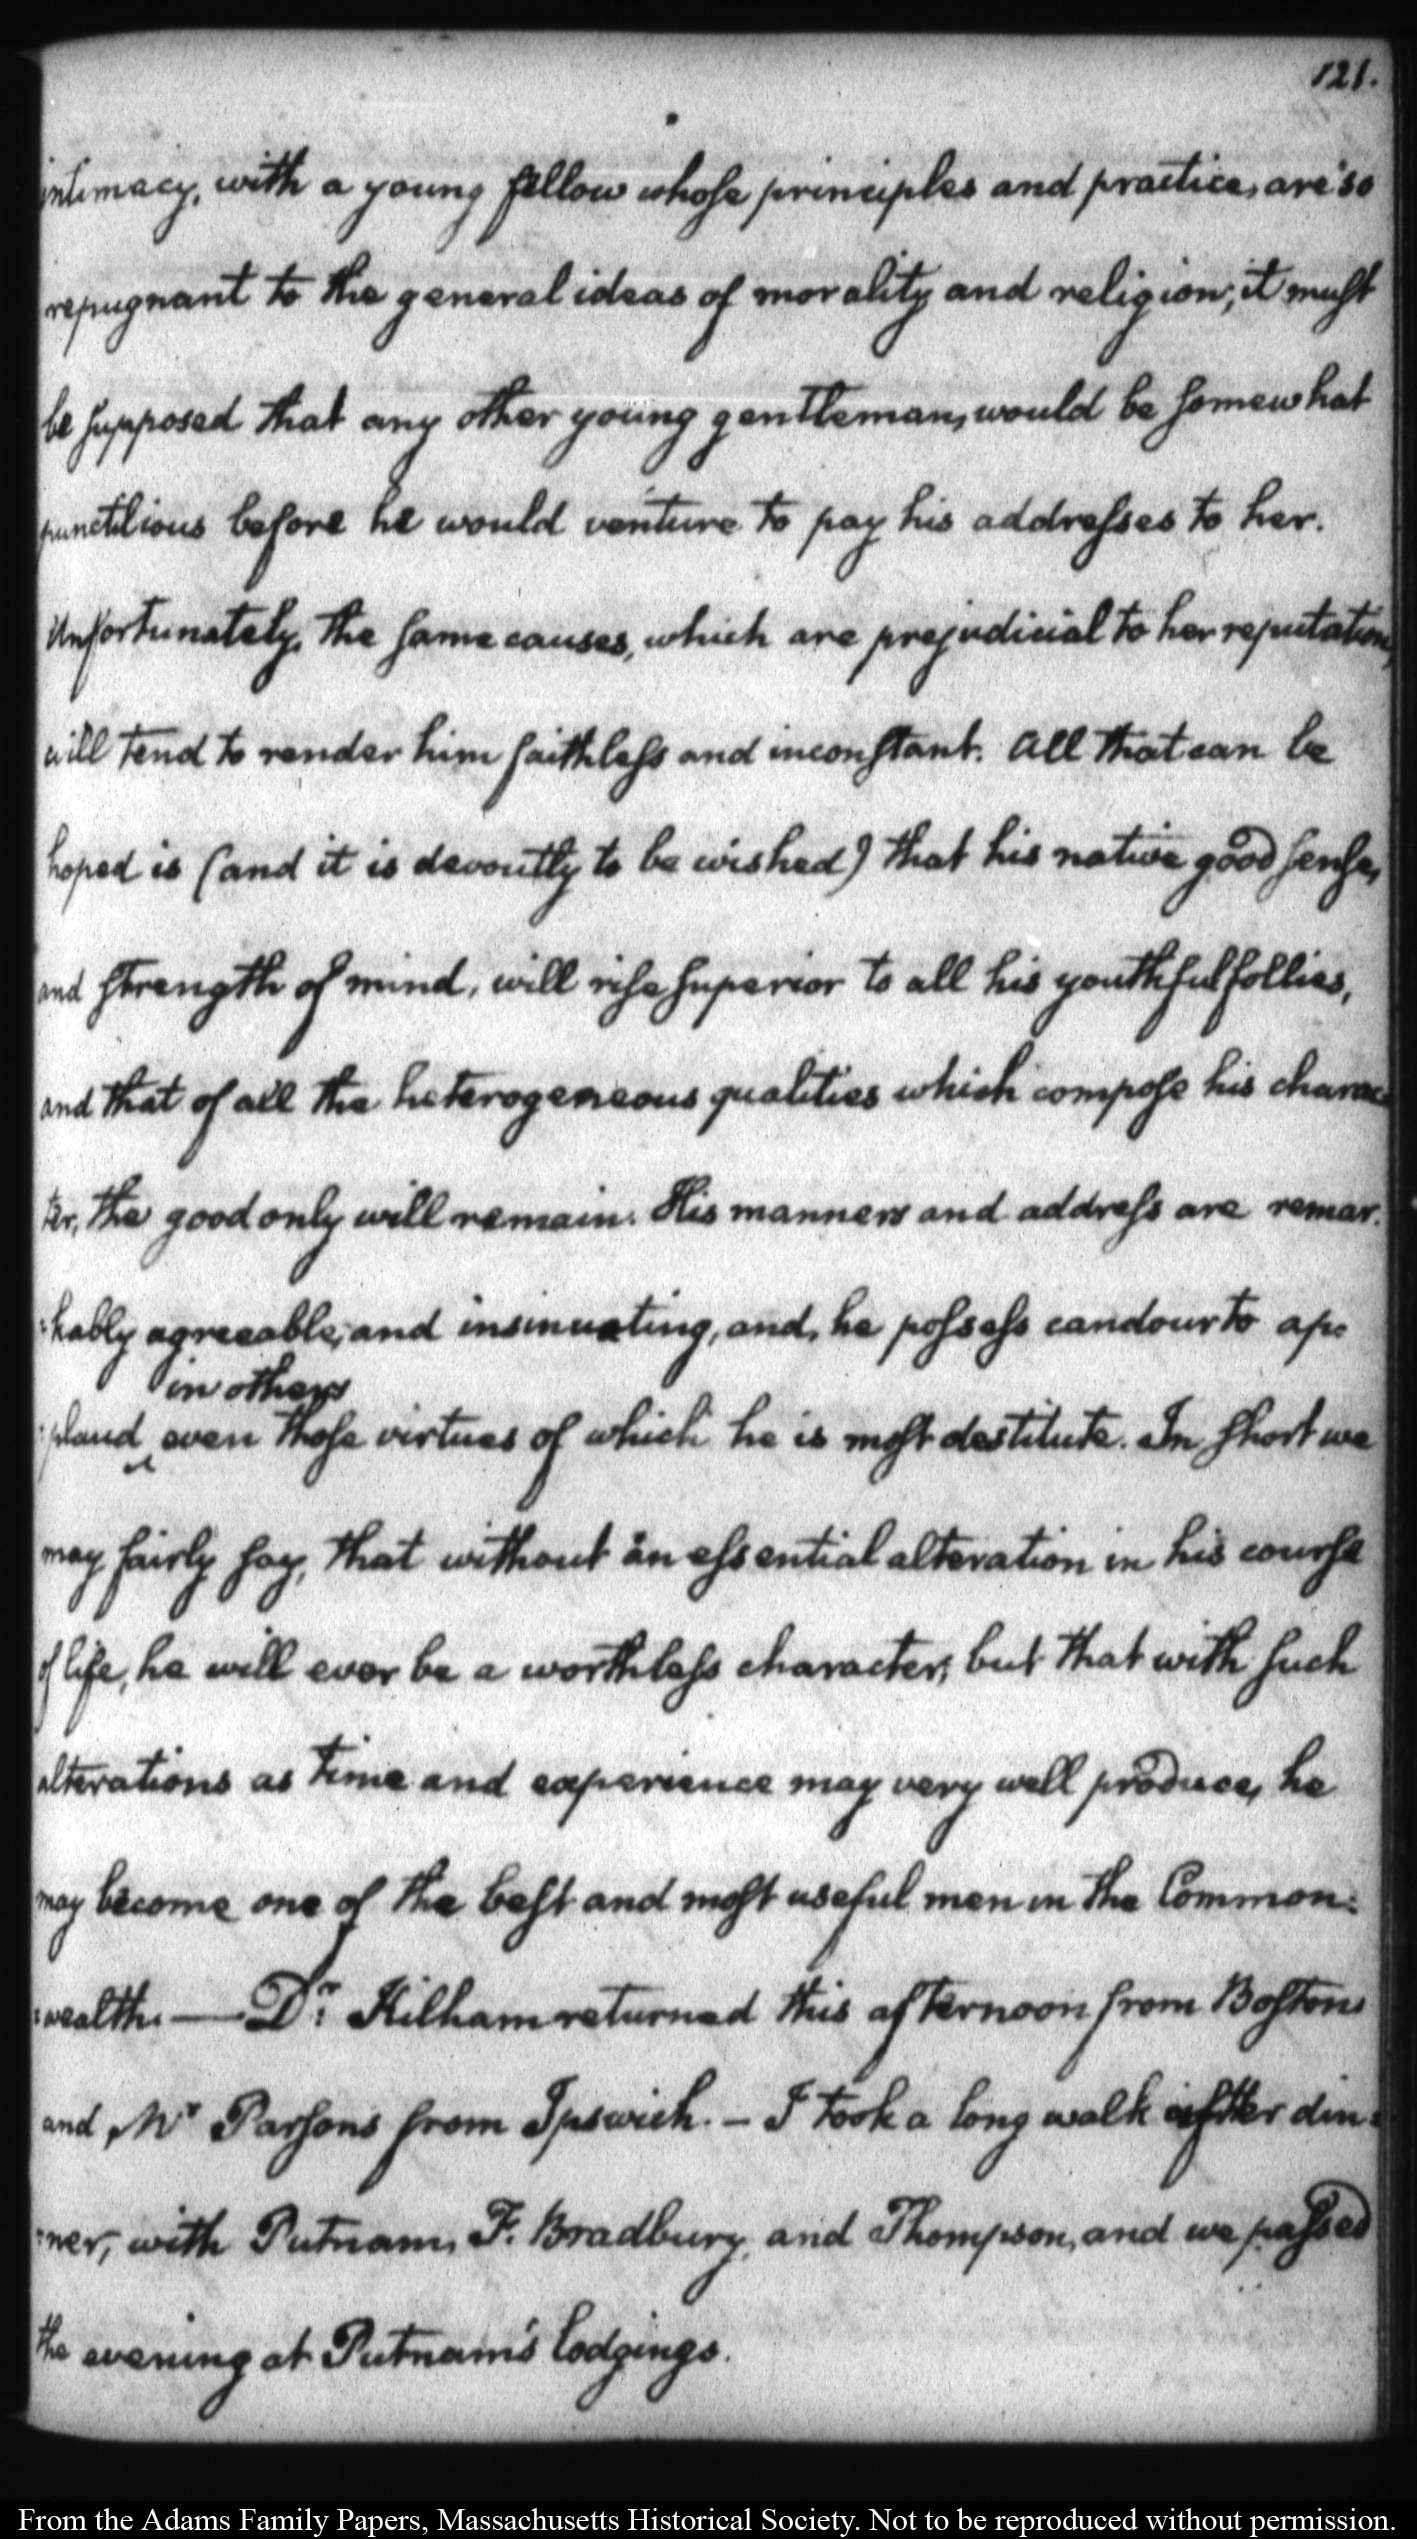 121.
intimacy, with a young fellow whose principles and practice, are so
repugnant to the general ideas of morality and religion; it must
be supposed that any other young gentleman, would be somewhat
punctilious before he would venture to pay his addresses to her.
Unfortunately, the same causes, which are prejudicial to her reputation,
will tend to render him faithless and inconstant. All that can be
hoped is (and it is devoutly to be wished) that his native good sense,
and strength of mind, will rise superior to all his youthful follies,
and that of all the heterogeneous qualities which compose his charac
ter, the good only will remain. His manners and address are remar.
:kably agreeable, and insinuating, and, he possess candour to ap:
in others
:plaud ‸ even those virtues of which he is most destitute. In short we
may fairly say, that without an essential alteration in his course
of life, he will ever be a worthless character; but that with such
alterations as time and experience may very well produce, he
may become one of the best and most useful men in the Common:
:wealth. — Dr. Kilham returned this afternoon from Boston
and Mr Parsons from Ipswich. – I took a long walk after din:
:ner, with Putnam, F. Bradbury, and Thompson, and we passed
the evening at Putnam's lodgings.
From the Adams Family Papers, Massachusetts Historical Society. Not to be reproduced without permission.